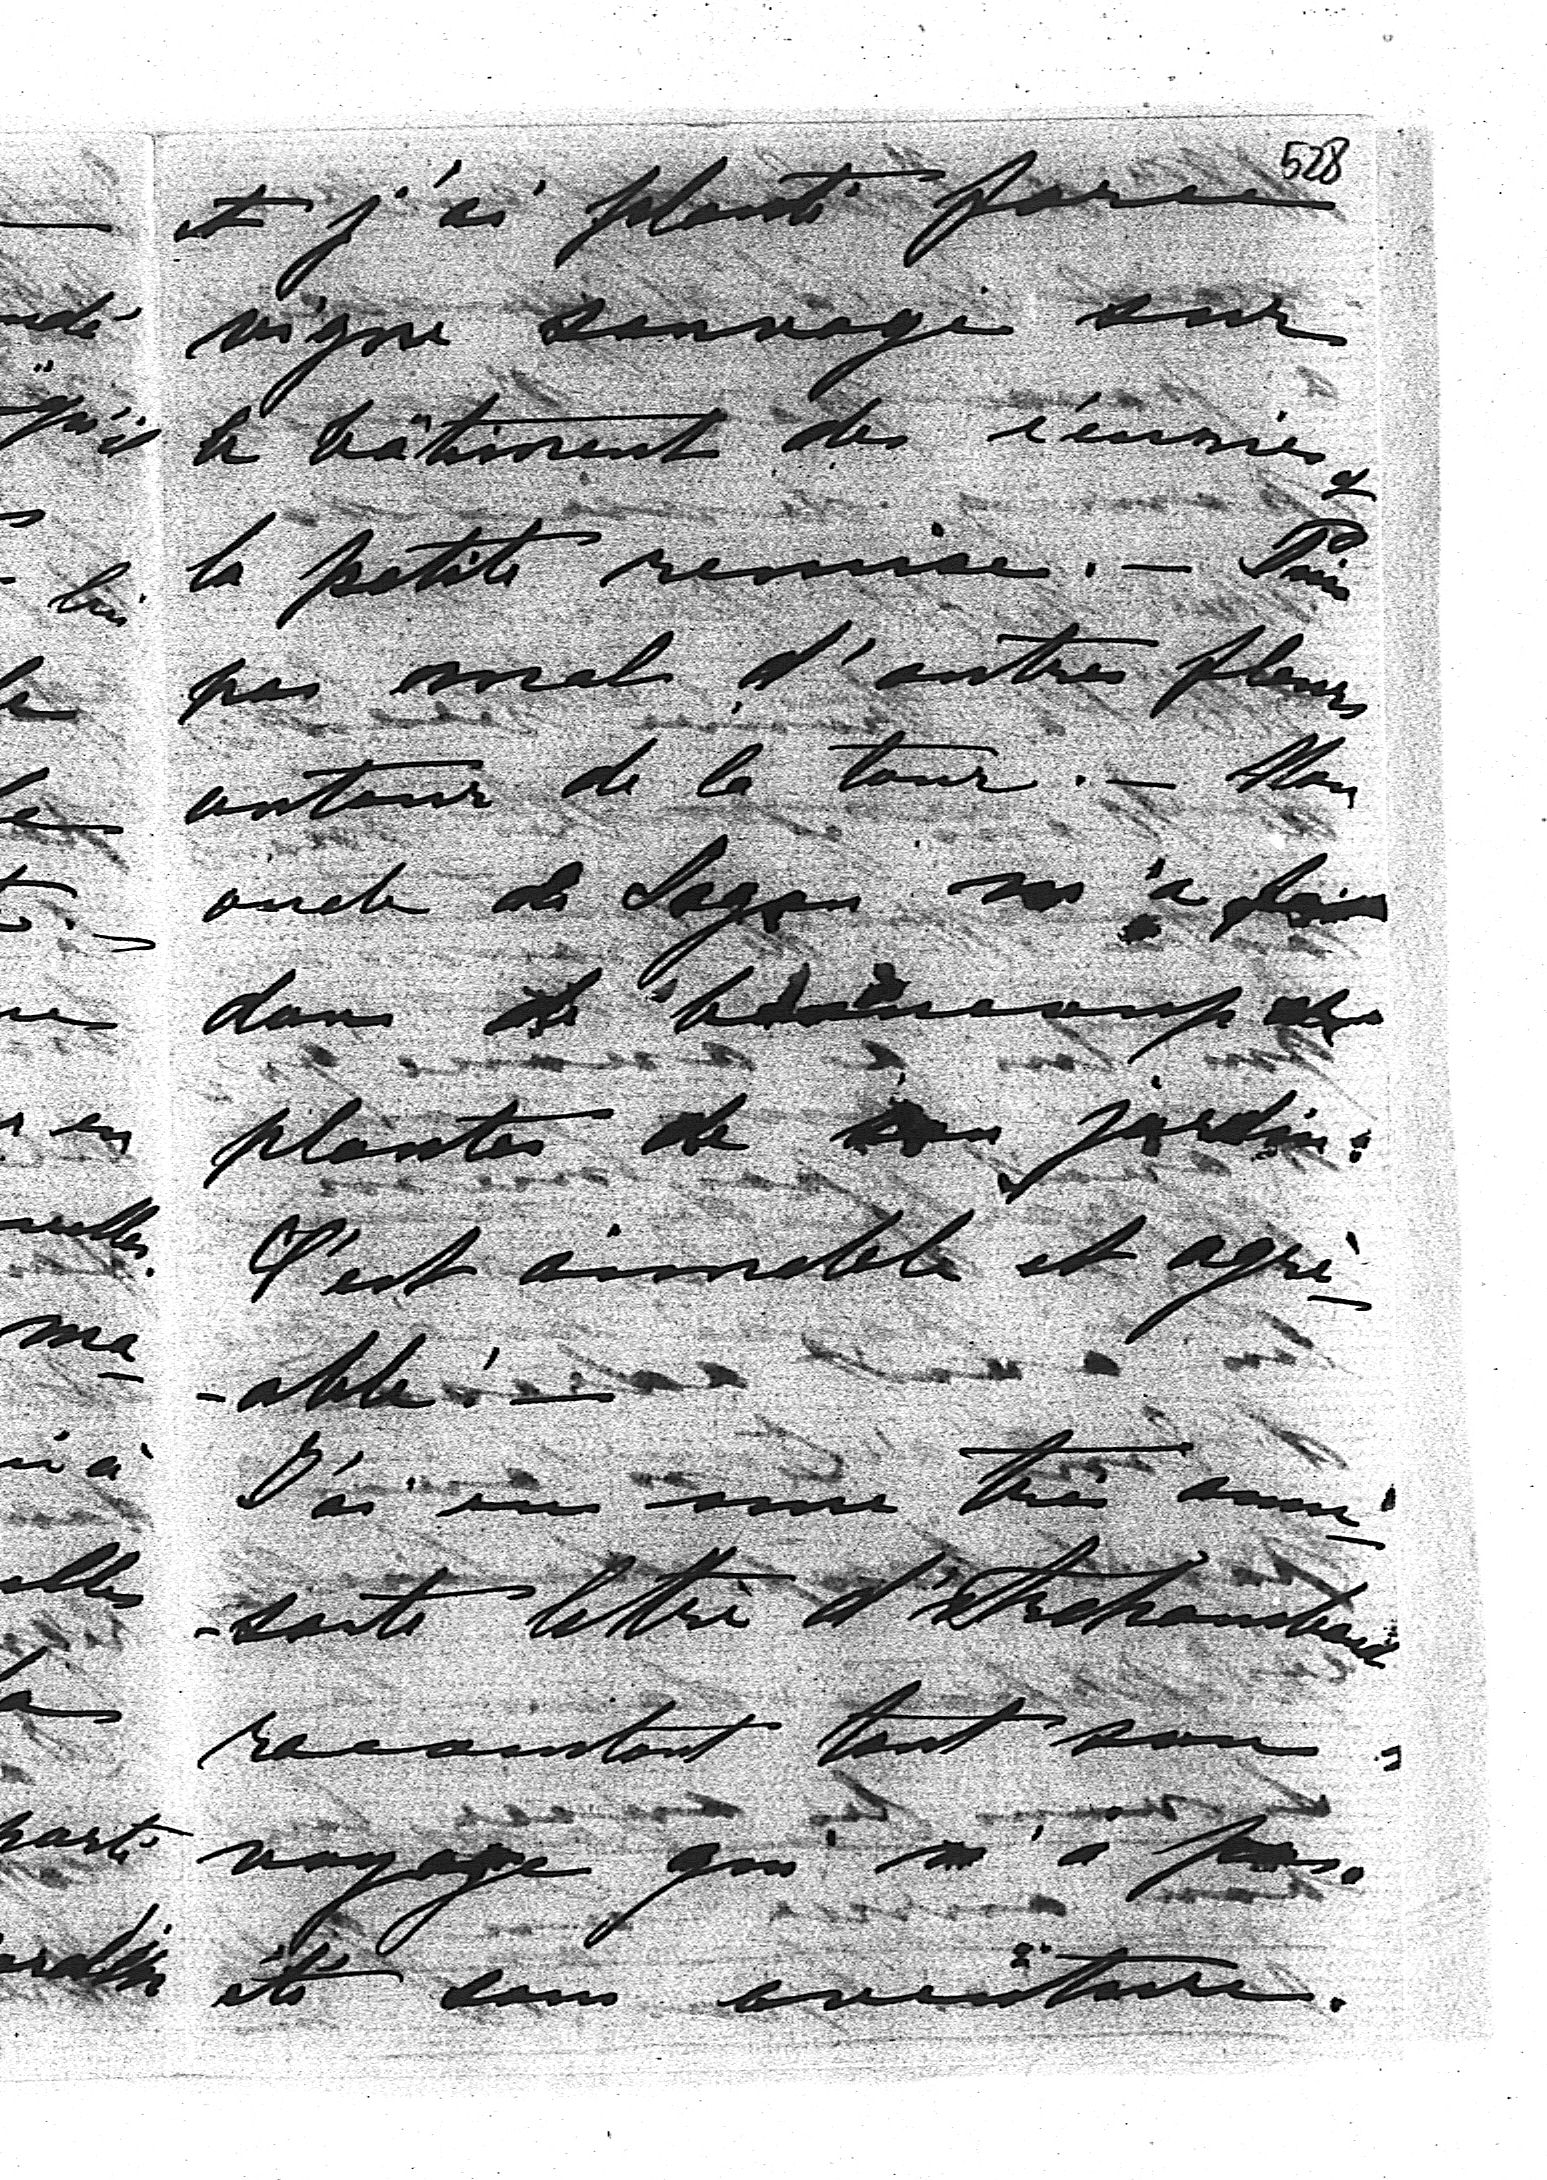 528
et j'ai planté force
vigne sauvage sur
le bâtiment des écuries et
la petite remise. — Puis
pas mal d'autres fleurs
autour de la tour. — Mon
oncle de Sagan m'a fait
don de beaucoup de
plantes de son jardin.
C'est aimable et agré-
-able. —
J'ai eu une très amu-
-sante lettre d'Archambaud
racontant tout son
voyage qui n'a pas
été sans aventure.